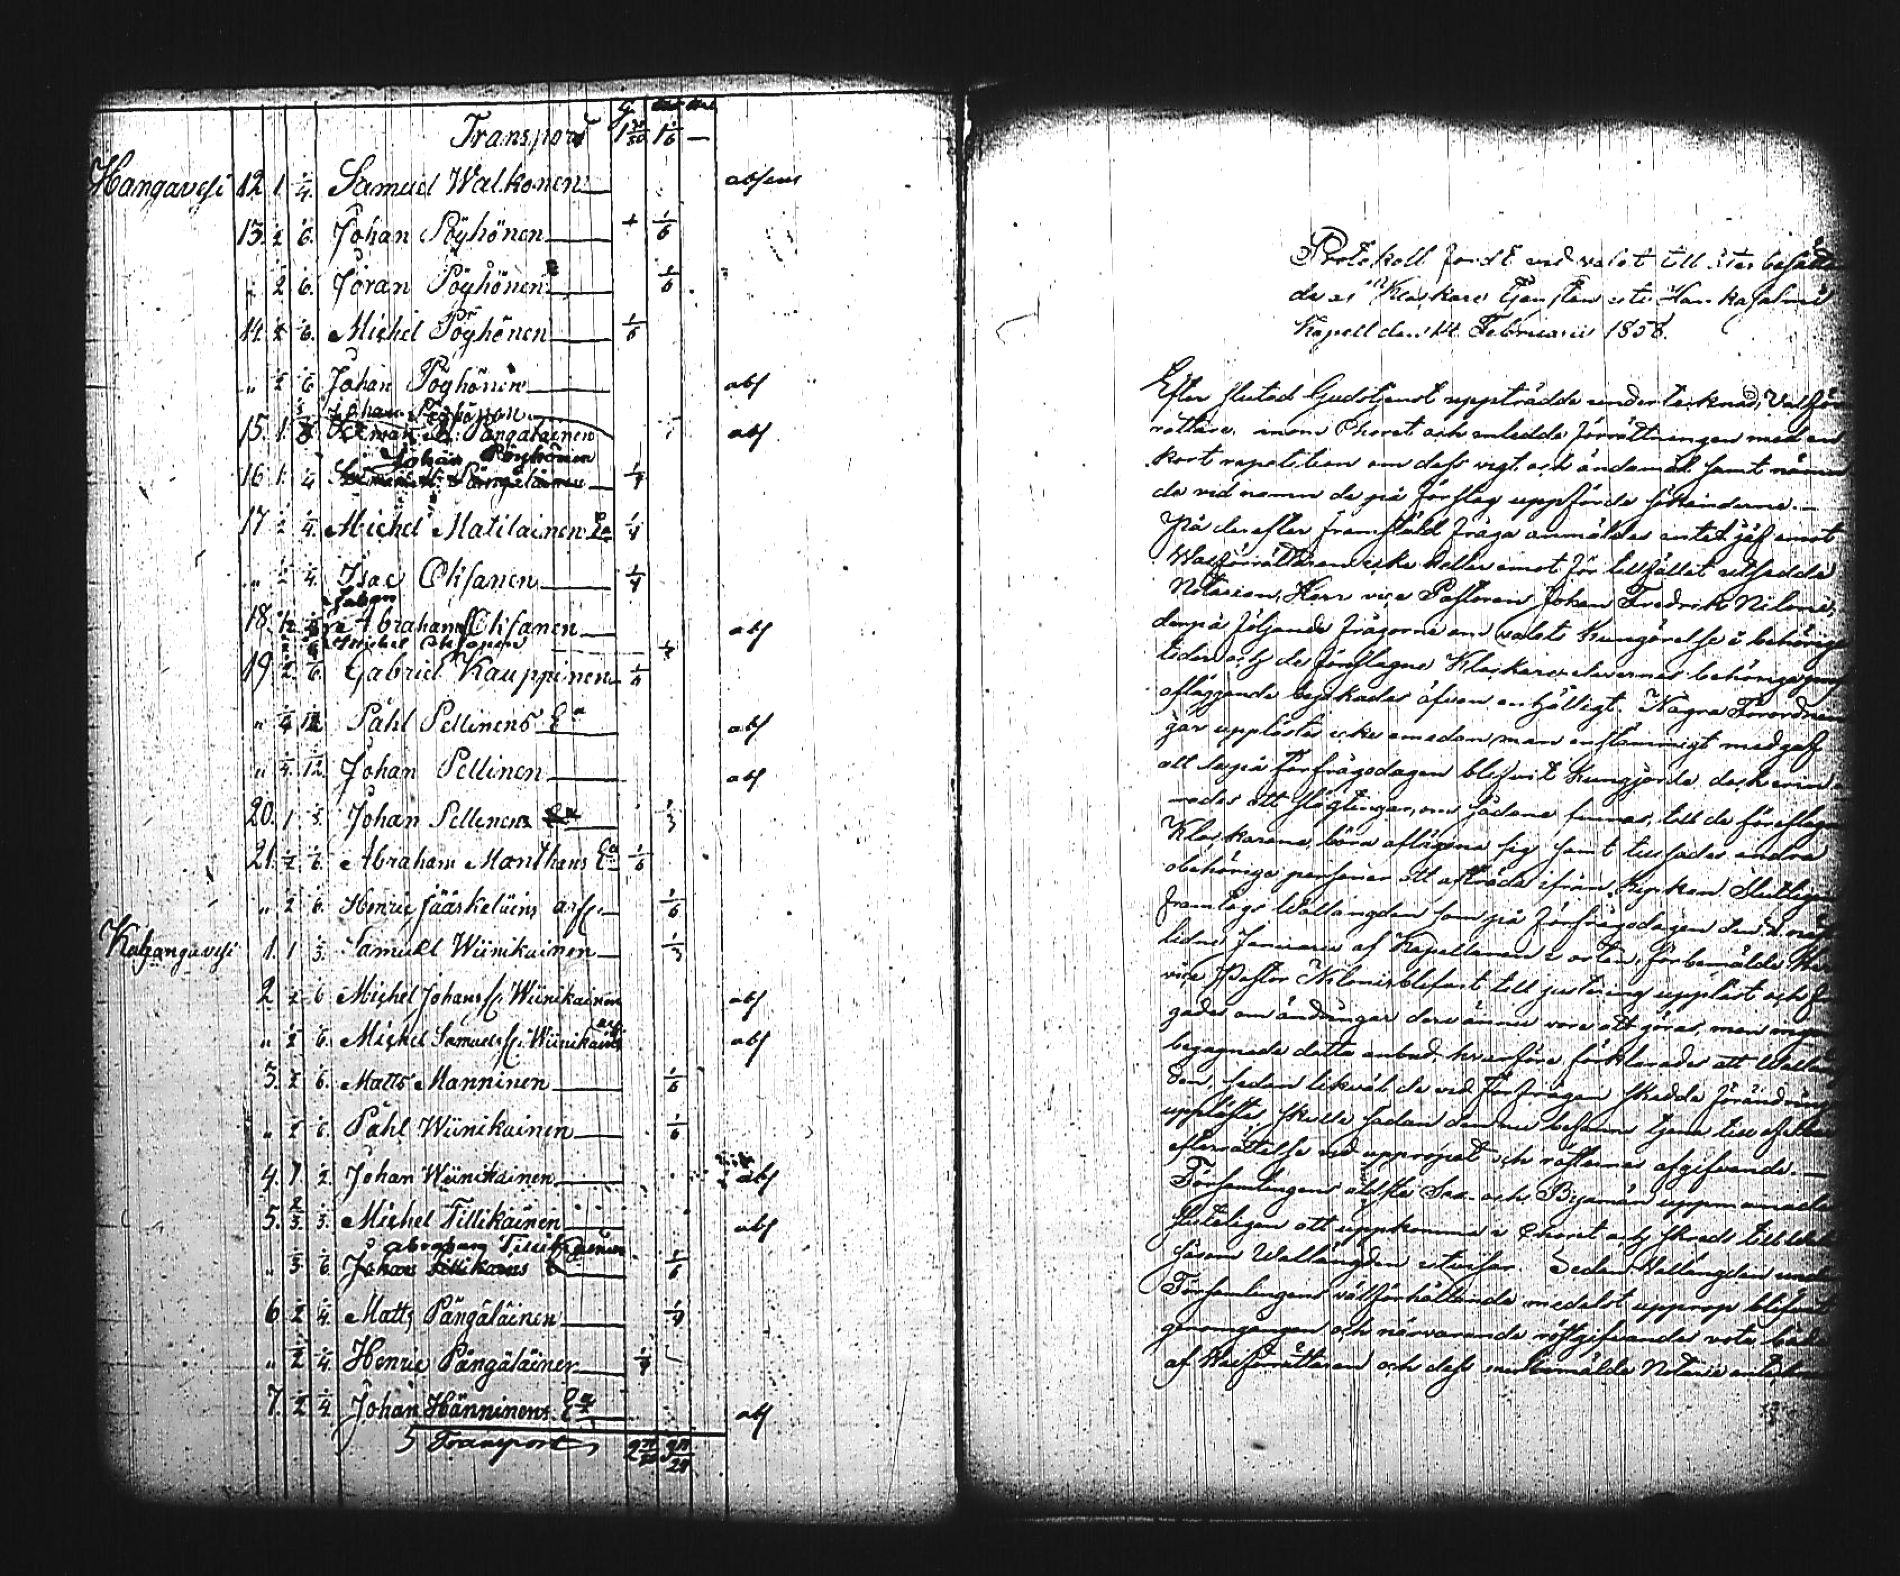 Transport 1 1/6 —
Hangavesi 12. 1. 1/4. Samuel Walkonen absens
13. 1/2 1/6. Johan Pöyhönen 1/6
" 1/2 1/6. Jöran Pöyhönen 1/6
14. 1/2 1/6. Michel Pöyhönen 1/6
" 1/2 1/6 Johan Pöyhönen abs
Johan Pöyhönen
15. 1. Pängäläinen abs
Johan Pöyhönen
16 1. 1/4 Pängäläinen 1/4
17 1/2 1/4. Michel Matilainen 1/4
" 1/2 1/4. Isac Oksanen 1/4
Johan
18. Abraham Oksanen abs
Michel Oksanen 1/4
19. 1/2 1/6. Gabriel Kauppinen 1/6
" 1/4 1/12 Påhl Pellinens Ea abs
" 1/4. 1/12. Johan Pellinen abs
20. 1 1/3. Johan Pellinens 1/3
21. 1/2 1/6. Abraham Manthans Ea 1/6
" 1/2 1/6. Henric Jääskeläins arf: 1/6
Kahangavesi 1. 1 1/3. Samuel Wiinikainen 1/3
2 1/2 1/6 Michel Johans S: Wiinikainen abs
" 1/2 1/6. Michel Samuels S: Wiinikains arf abs
3. 1/2 1/6. Matts Manninen 1/6
" 1/2 1/6. Påhl Wiinikainen 1/6
4. 1 1/2. Johan Wiinikainen abs
5. 2/3 1/3. Michel Tillikainen abs
Abraham Tillikainen
" 1/3 1/6. Johan Tillikains 1/6
6 1/2 1/4. Matts Pängäläinen 1/4
" 1/2 1/4. Henric Pängäläinen 1/4
7. 1/2 1/4. Johan Hänninens Ea abs
Transport
Protokoll fördt vid valet till återbesättan
de af Klockare tjensten uti Hankasalmi
Kapell den 14 Februarii 1858.
Efter slutad Gudstjenst uppträdde undertecknad, Valför
rättare, inom Choret och inledde förrättningen med en
kort repetition om dess vigt och ändamål samt nämn
de vid namn de på förslag uppförde sökanderne.—
På derefter framstäld fråga anmäldes intet jäf emot
Walförrättaren icke heller emot för tillfället utsedde
Notarien, Herr vice Pastoren Johan Fredrik Nilonis,
derpå följande frågorne om valets kungörelse i behörig
tid och de föreslagne Klockare elevernes behöriga prof
afläggande bejakades äfven enhälligt. Några Förordnin
gar upplästes icke emedan man enstämmigt medgaf
att de på Förfrågodagen blifvit kungjorde, dock erin
rades att slägtingar, om sådane finnas, till de föreslagne
Klockarene böra aflägsna sig samt tillsades andra
obehöriga personer att afträda ifrån kyrkan. Slutligen
framlags Wallängden som på förfrågodagen den
lidne Januarii af Kapellanen i orten, förbemälde Herr
vice Pastor Nilonis blifvit till justering uppläst och frå
gades om ändringar deri ännu vore att göras, men ingen
begagnade detta anbud, hvarföre förklarades att Wallän
den, sedan likväl de vid Förfrågan skedde förändringar
upplästes, skulle sådan den nu befanns tjena till
efterrättelse vid uppropet och rösternas afgifvande.—
Församlingens äldste Sex- och Byamän uppmanades
slutligen att uppkomma i Choret och skreds till
såsom Wallängden utvisar. Sedan Wallängden under
Församlingens välförhållande medelst upprop blifvit
genomgången och närvarande röstgifvandes vota både
af Walförrättaren och dess medbemälde Notarie anteckn